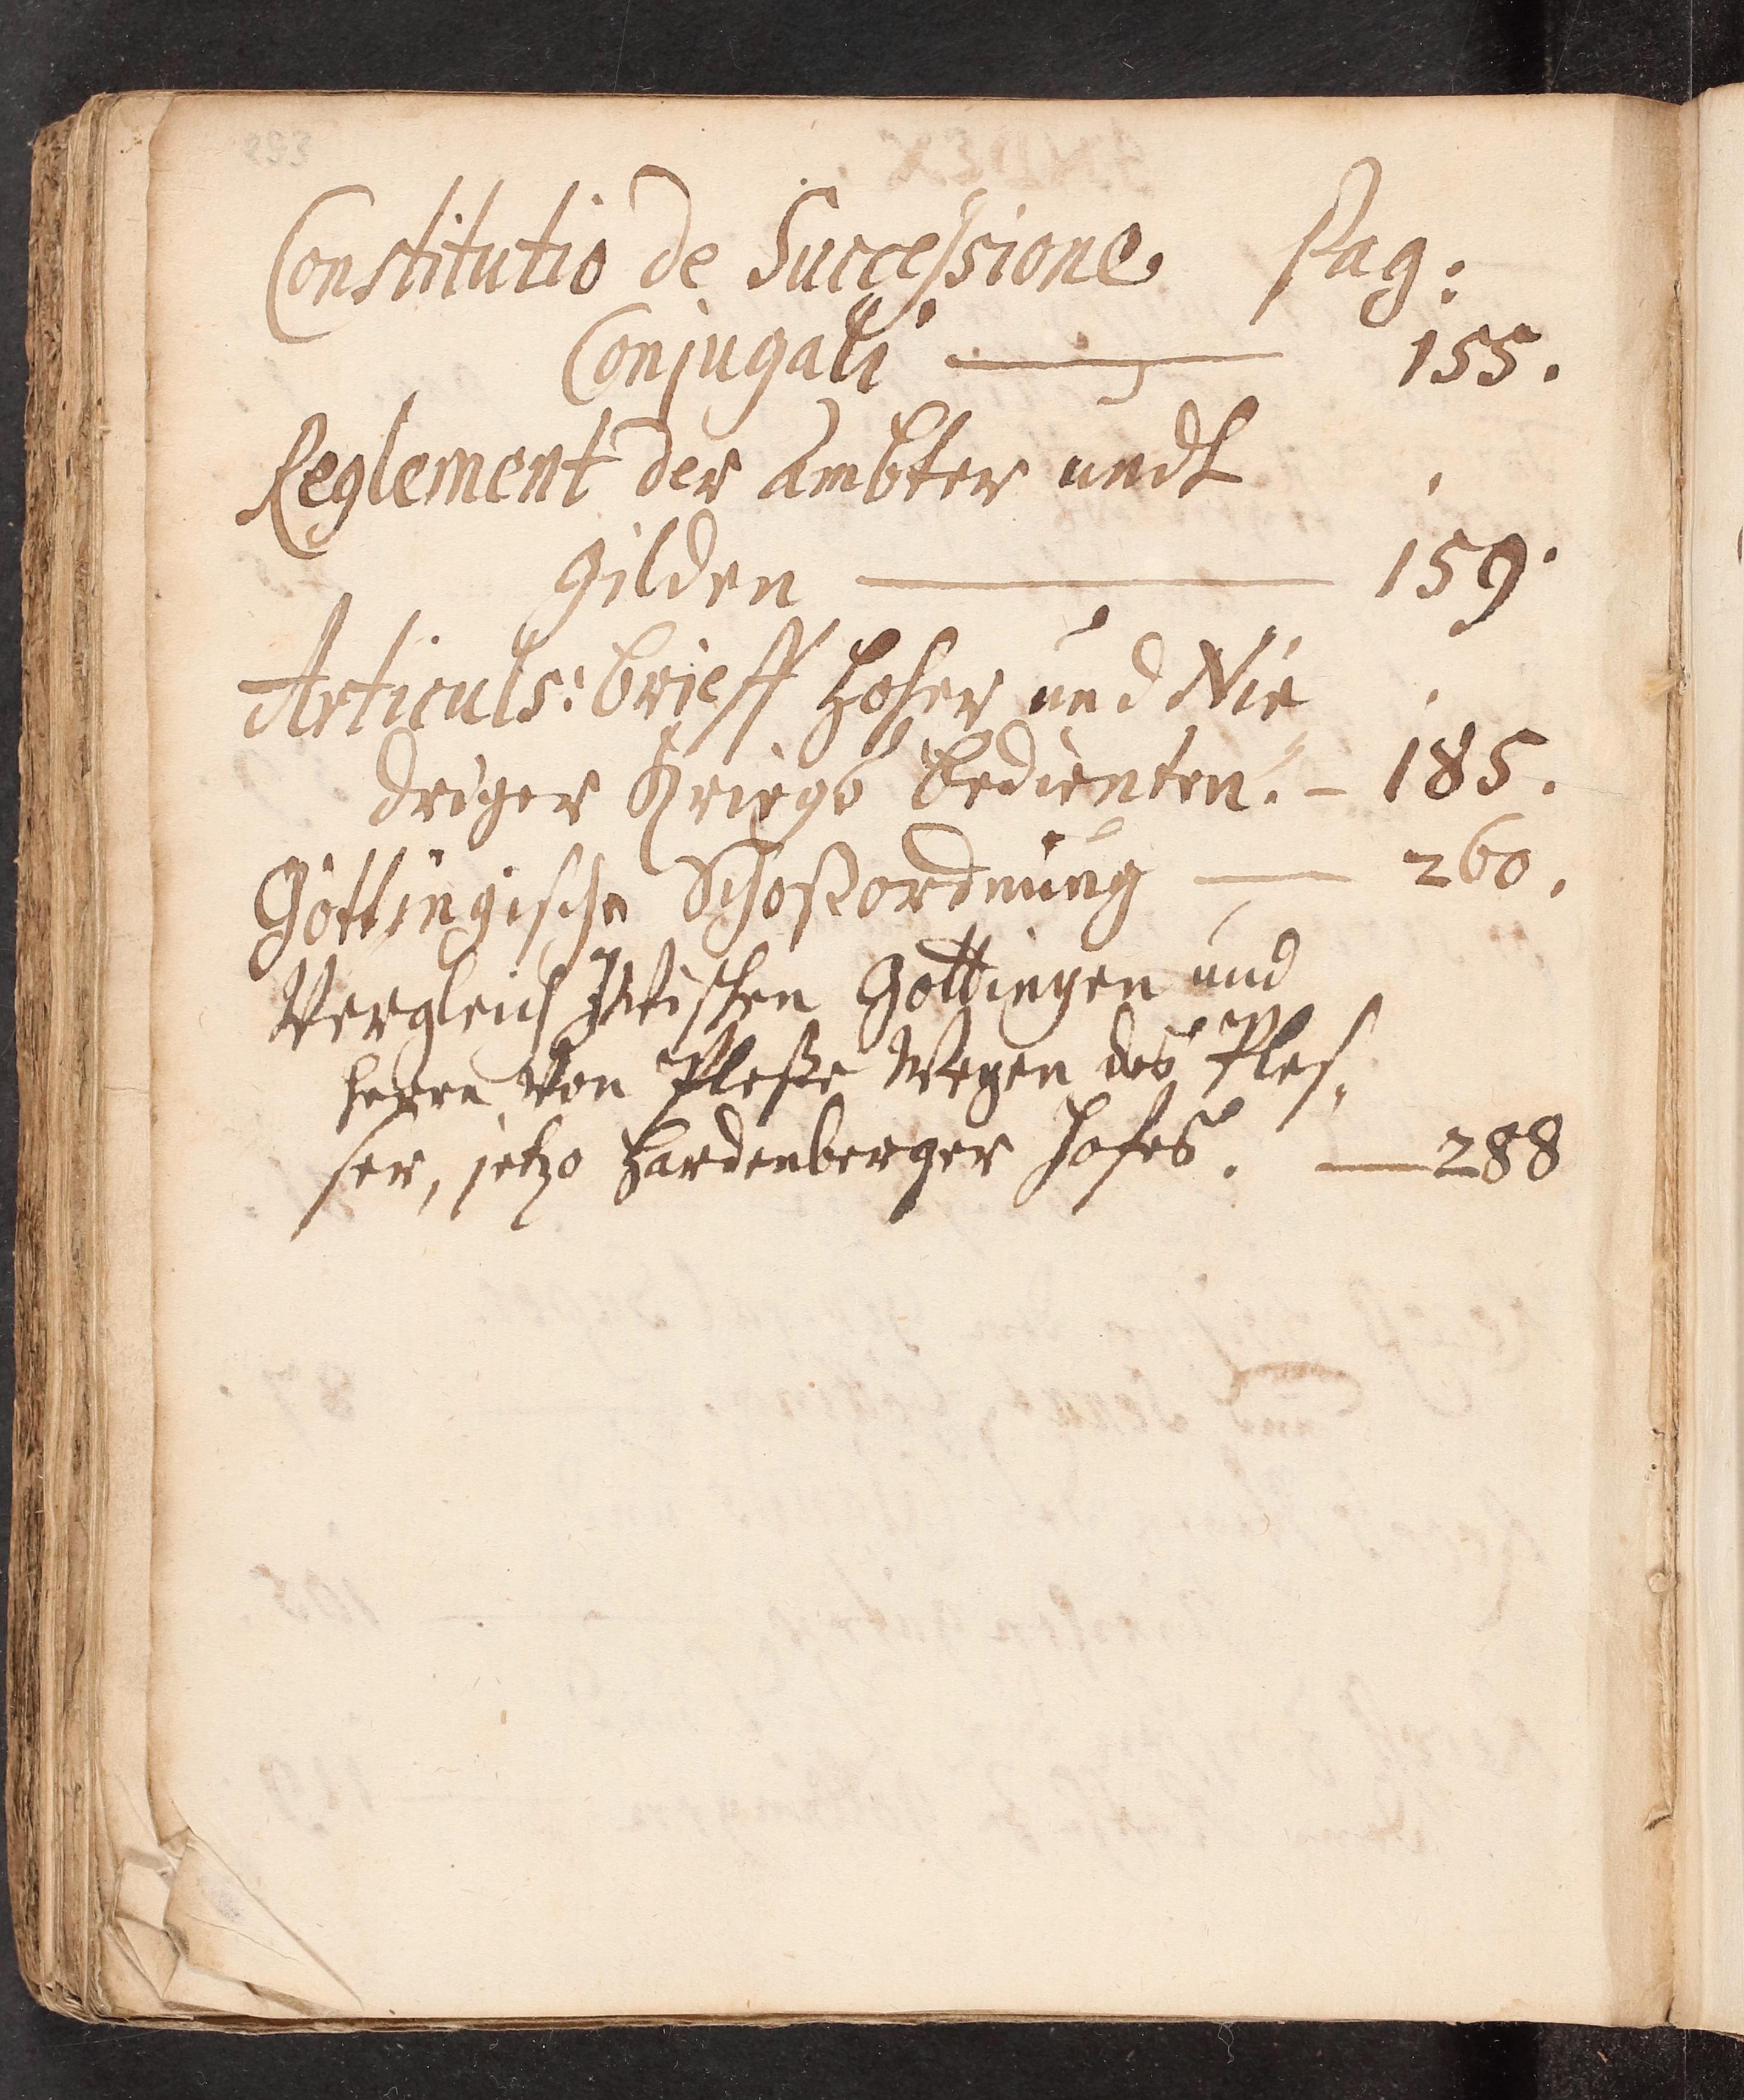 Constitutio de Successione Pag:
Conjugali — 155.
Reglement der Ämbter undt
Gilden — 159.
Articuls: brieff hoher und Nie
driger Kriegs bedienten. – 185.
Göttingische Schoßordnung — 260.
Vergleich Zwischen Göttingen und
Herrn von Pleße wegen des Ples,
ser, jetzo Hardenberger Hofes. — 288